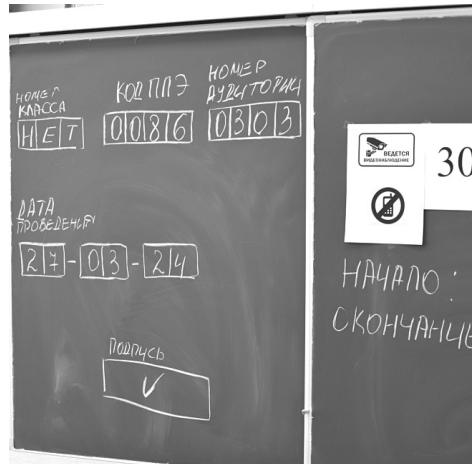 НОМЕР КЛАССА
НЕТ
КОД ППЭ
0086
НОМЕР АУДИТОРИИ
0303
ДАТА ПРОВЕДЕНИЯ
27-03-24
ПОДПИСЬ
ВЕДЕТСЯ
ВИДЕОНАБЛЮДЕНИЕ
30
НАЧАЛО:
ОКОНЧАНИЕ